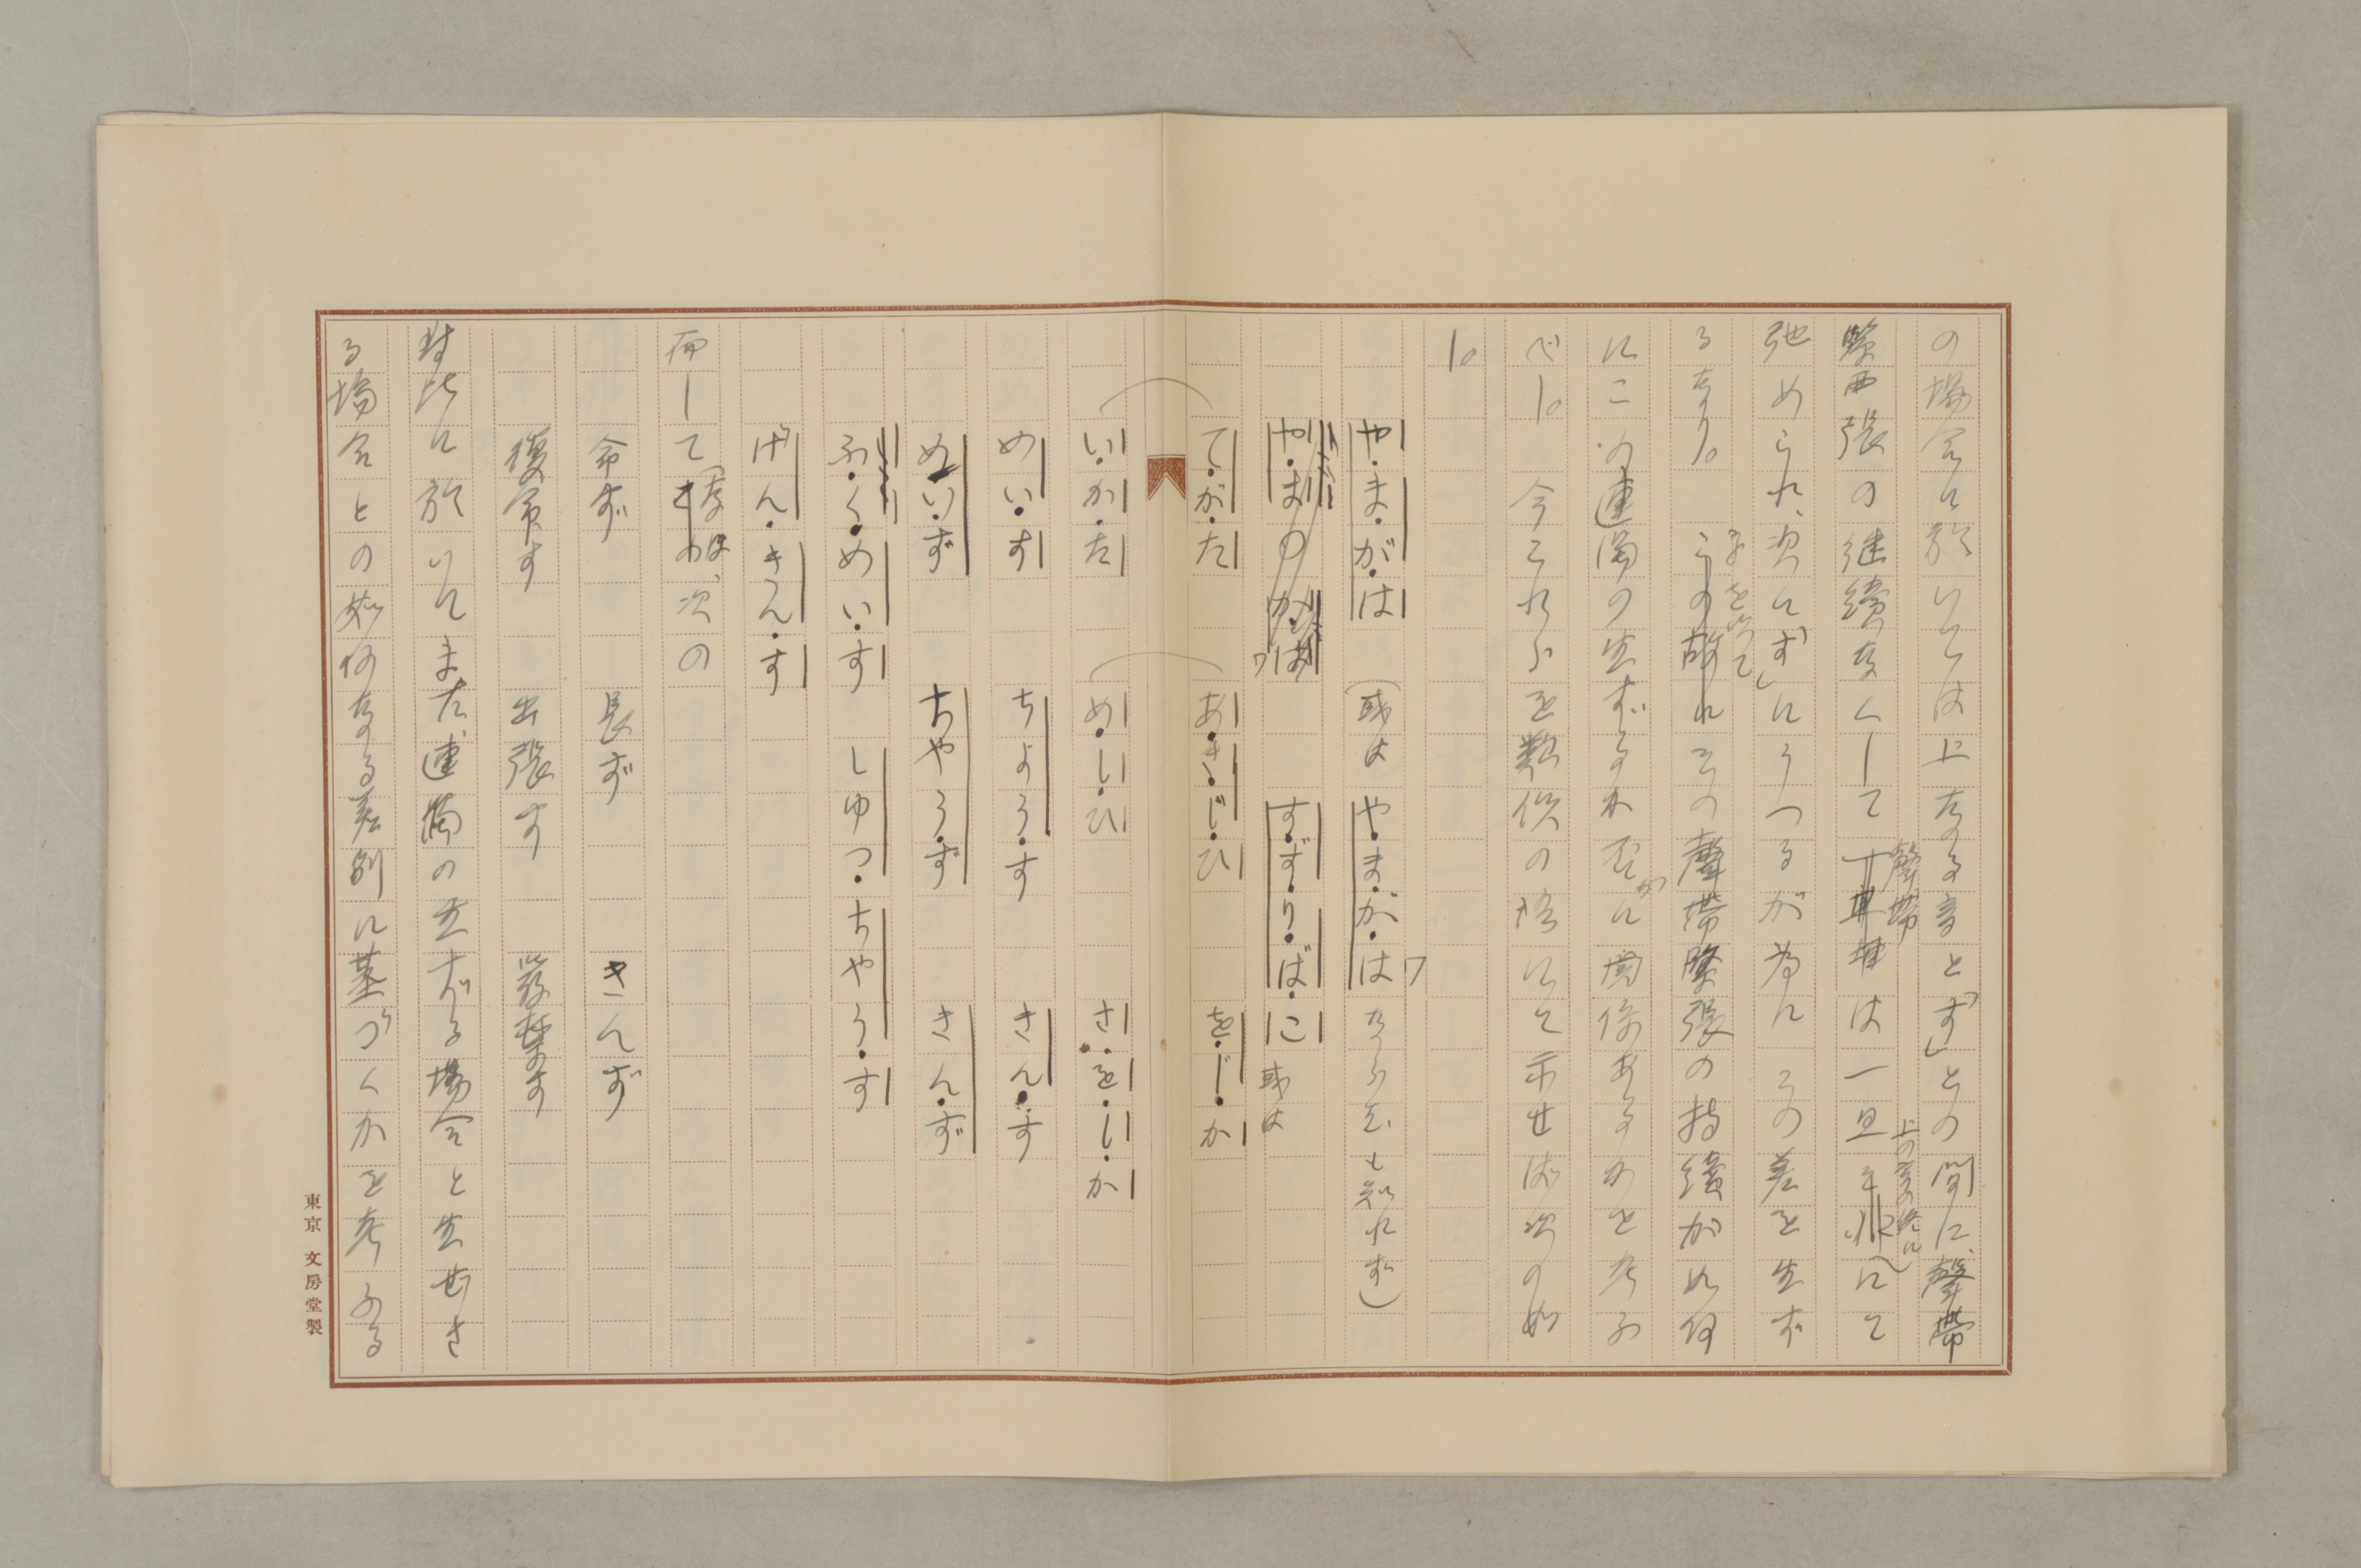 の場合に於いては上なる音と「ず」との間に、聲帶
緊張の継續なくして聲帶は一旦上の音の終にて
弛められ、次に「ず」にうつるが為に この差を生ず
るなり。 故にその聲帶緊張の持續が如何
にこの連濁の生ずるか否かに関係あるかを考ふ
べし。 今これらを数個の語にて示せば次の如
し。
や・ま・が・は (或は や・ま・が・は ワ ならむも知れず)
す・ず・り・ば・こ 或は
て・が・た あ・き・じ・ひ を・じ・か
い・か・た め・し・ひ さ・を・し・か
めい・す ちよう・す さん・す
めい・ず ちやう・ず きん・ず
ふ・く・めい・す しゆつ・ちやう・す
げん・きん・す
而して なほ、次の
命ず 長ず きんず
復命す 出張す 嚴禁す
対比に於いてまた、連濁の生ずる場合と生せさ
る場合との如何なる差別に基づくかを考ふる
東京 文房堂製